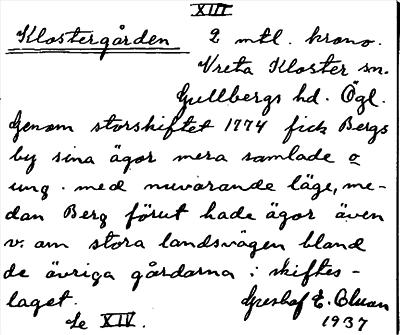 XIII
Klostergården 2 mtl. krono.
Vreta Kloster sn.
Gullbergs hd. Ögl.
Genom storskiftet 1774 fick Bergs
by sina ägor mera samlade o
ung. med nuvarande läge, me-
dan Berg förut hade ägor även
v. om stora landsvägen bland
de övriga gårdarna i skiftes-
laget.
Se XIV.
E.
1937